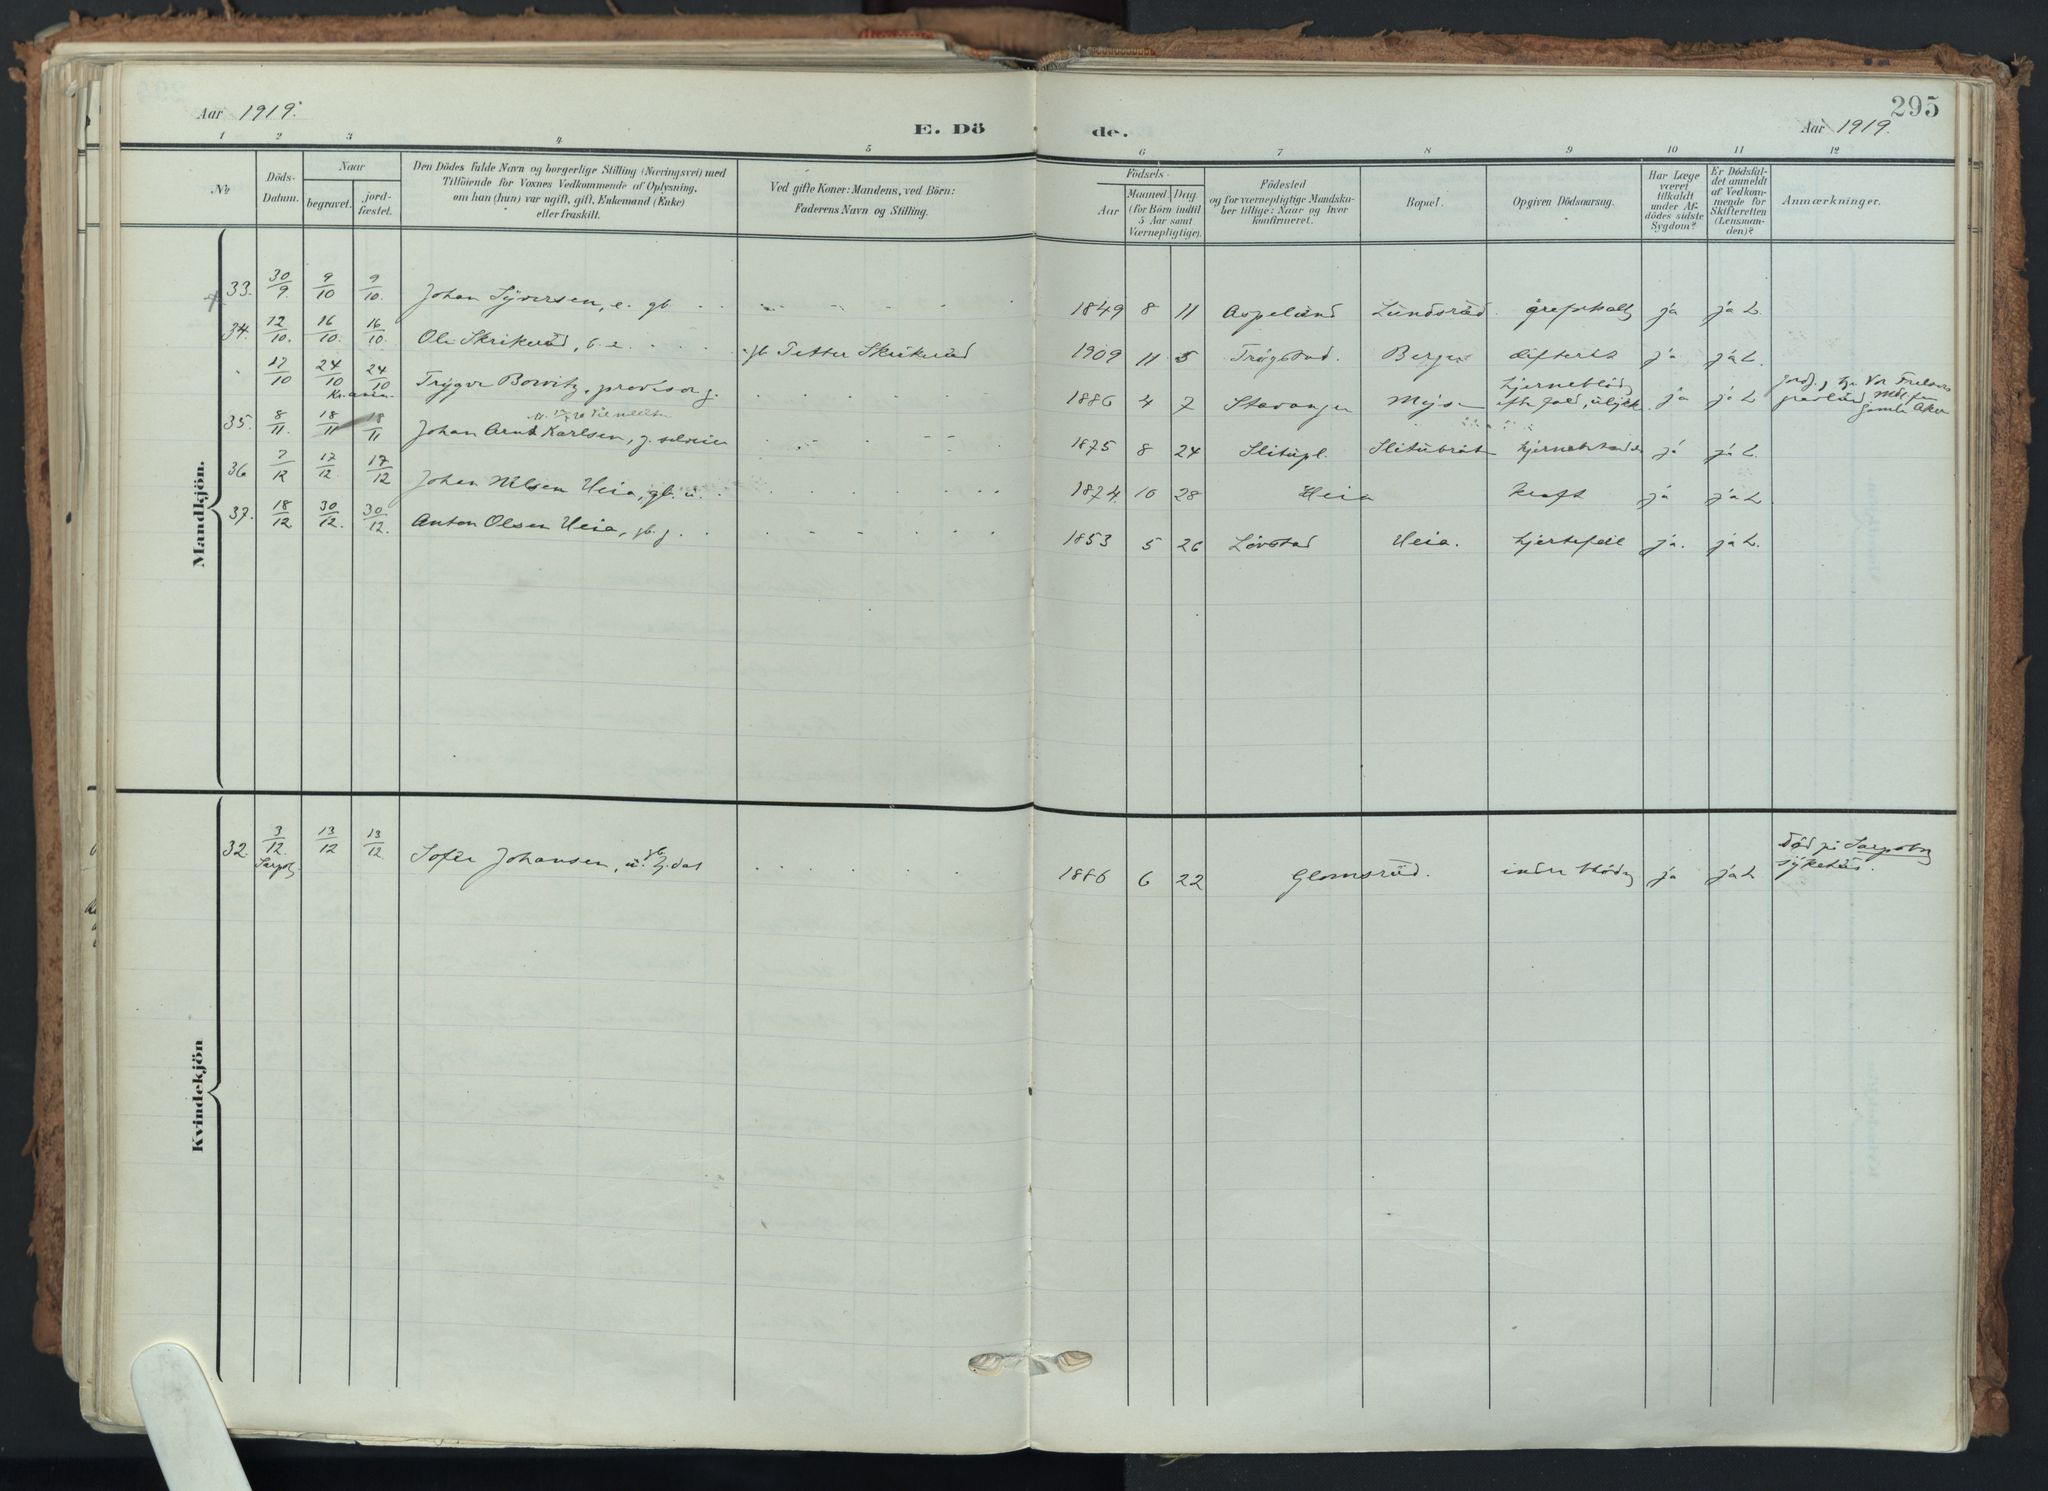 Aar 1919.
E. Dö
de.
295
Aar 1919.
1 2 3 4 5 6 7 8 9 10 11 12
No
Döds-Datum.
Naar
begravet.
jord-fæstet.
Den Dödes fulde Navn og borgerlige Stilling (Næringsvei) med
Tilföiende for Voxnes Vedkommende af Oplysning,
om han (hun) var ugift, gift, Enkemand (Enke)
eller fraskilt.
Ved gifte Koner: Mandens, ved Börn:
Faderens Navn og Stilling.
Födsels-
Aar
Maaned. Dag.
(for Börn indtil
5 Aar samt
Værnepligtige).
Födested
og for værnepligtige Mandska-
ber tillige: Naar og hvor
konfirmeret.
Bopæl.
Opgiven Dödsaarsag.
Har Læge
været
tilkaldt
under Af-
dödes sidste
Sygdom?
Er Dödsfal-
det anmeldt
af Vedkom-
mende for
Skifteretten
(Lensman-
den)?
Anmærkninger.
Mandkjön.
33. 30/9. 9/10 9/10. Johan Syversen, e. gb. 1849 8 11 Aspelund Lundsrud ja ja L.
34. 12/10. 16/10. 16/10. Ole Skrikerud, gb. Petter Skrikerud 1909 11 5 Trøgstad. Berger difterit ja ja L.
17/10 24/10 24/10 Trygve Bowitz, provisor g. 1886 4 7 Stavanger Mysen hjerneblødn. ja ja L
35. 8/11. 18/11 18/11 Johan Arnt Karlsen, g. 1875 8 24 Slitupl. ja ja L.
36 7/12 17/12. 17/12 Johan Nilsen Heia, gb. u. 1874. 10 28 Heia kræft ja ja L
37. 18/12. 30/12. 30/12. Anton Olsen Heia, gb. g. 1853 5 26 Løvstad Heia. hjertefeil ja. ja L.
Kvindekjön
32. 3/12. 13/12 13/12. Sofie Johansen, u. gb. dat 1886 6 22 Glomsrud. indre blødn ja ja L død på Sarpsborg
sykehus.